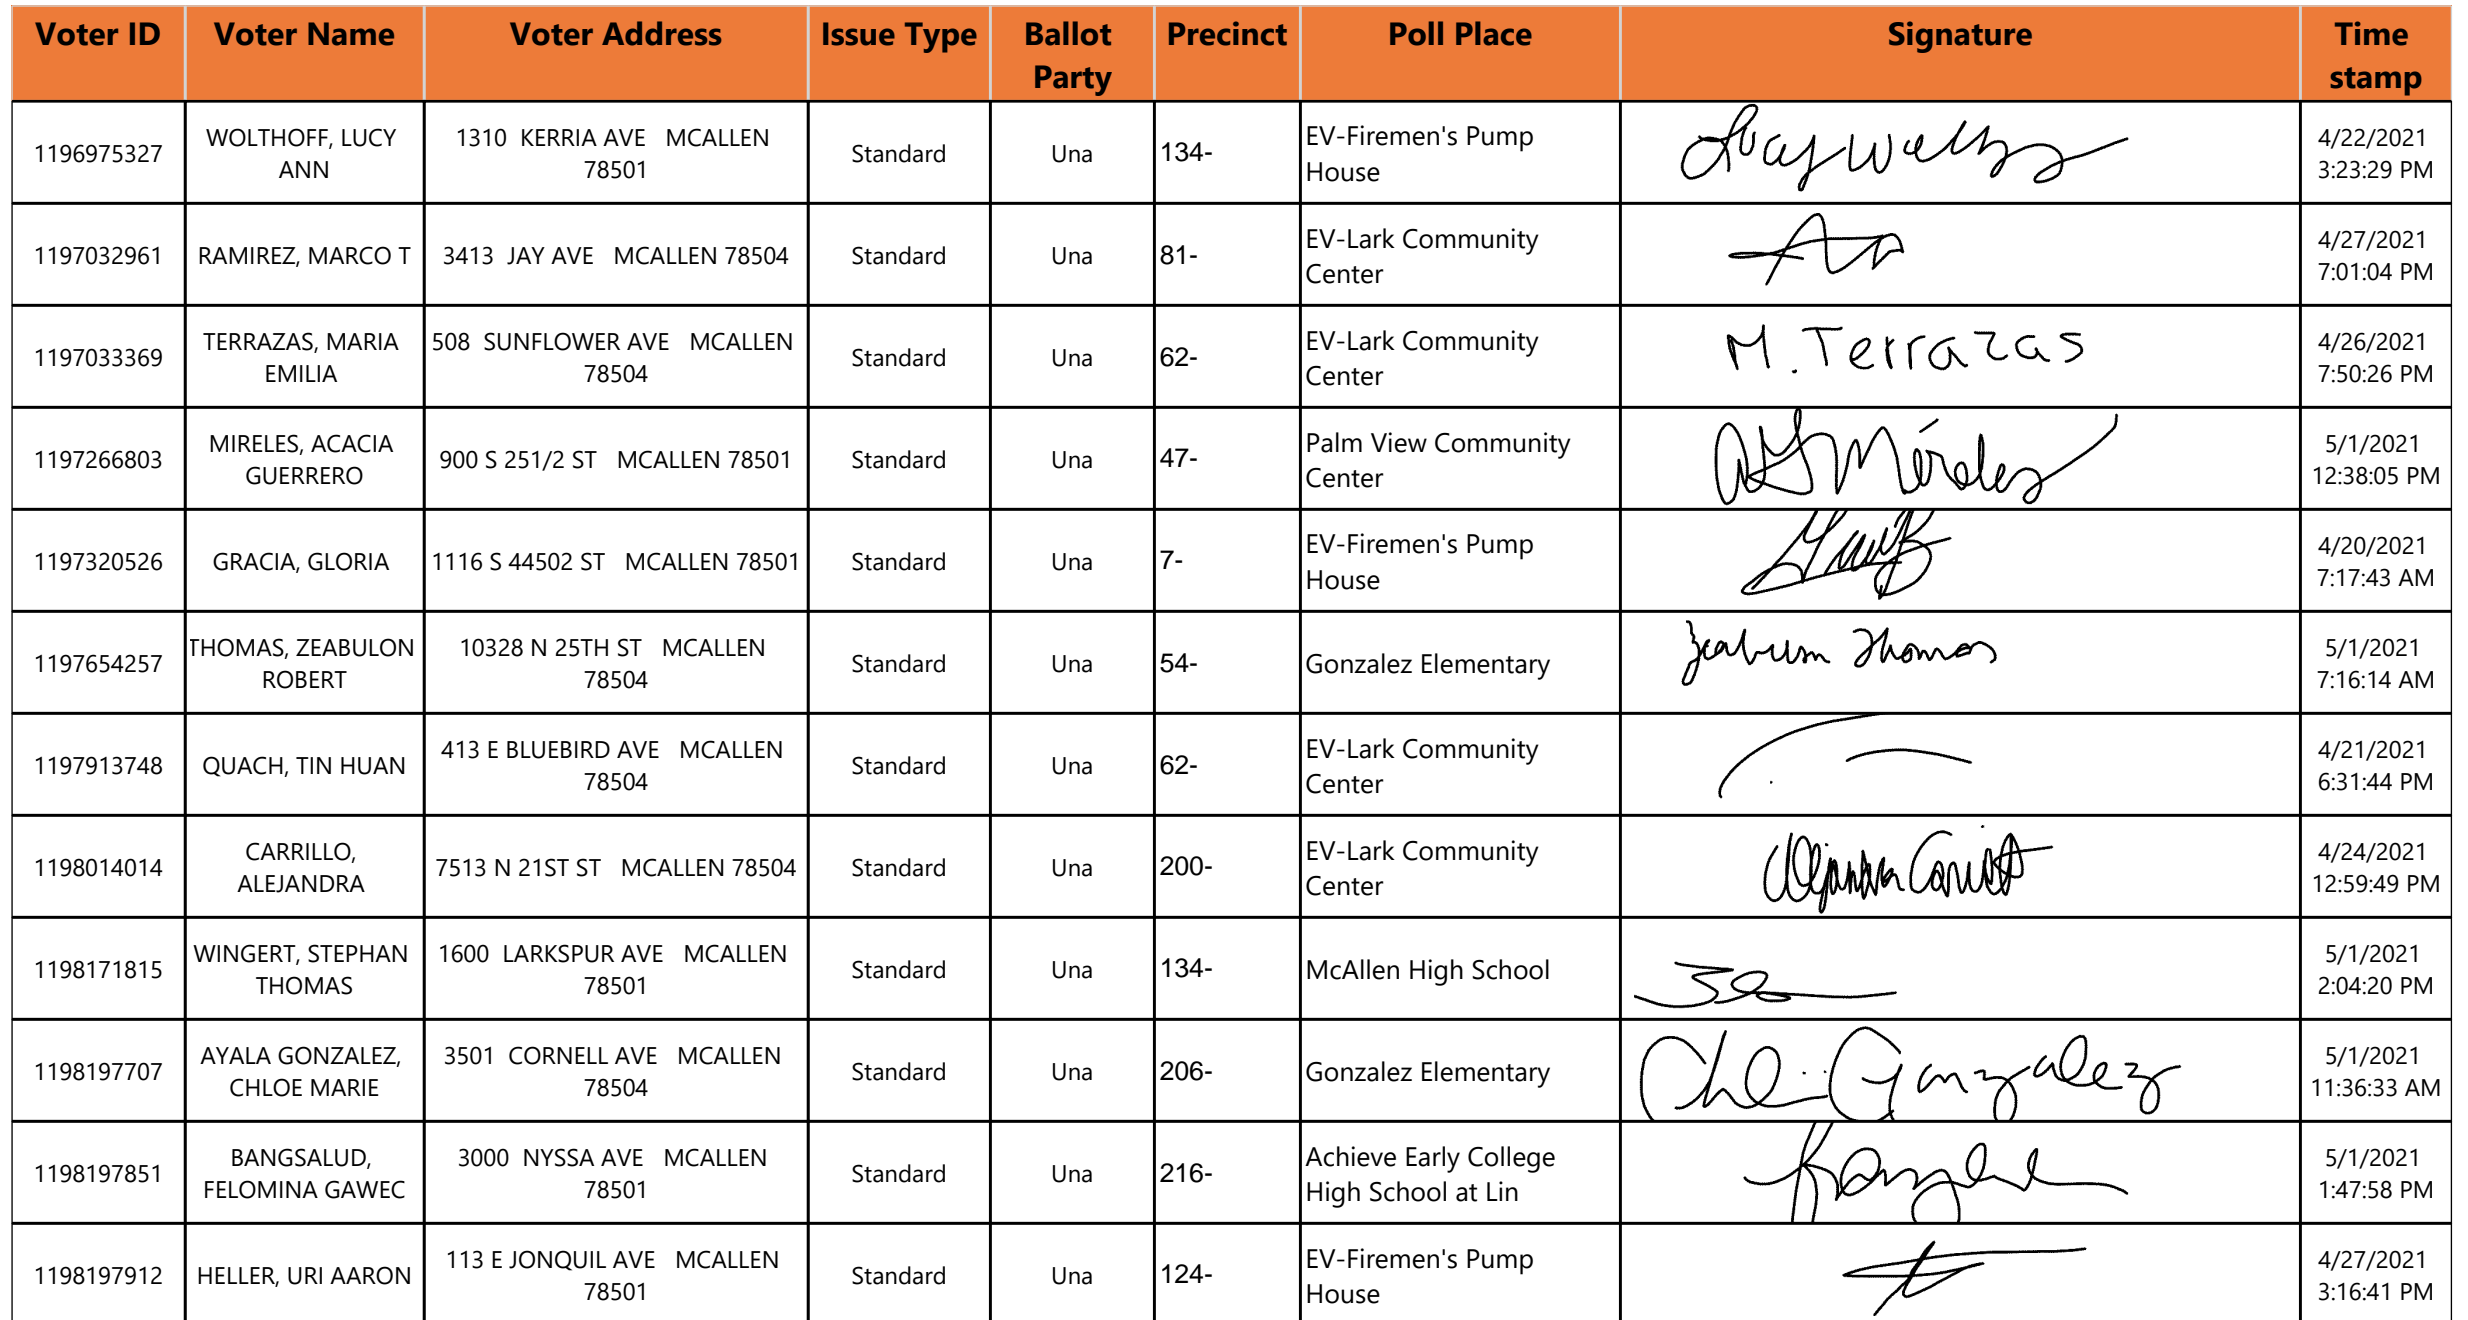 Voter ID Voter Name Voter Address Issue Type Ballot Party Precinct Poll Place Signature Time stamp
1196975327 WOLTHOFF, LUCY ANN 1310 KERRIA AVE MCALLEN 78501 Standard Una 134- EV-Firemen's Pump House 4/22/2021 3:23:29 PM
1197032961 RAMIREZ, MARCO T 3413 JAY AVE MCALLEN 78504 Standard Una 81- EV-Lark Community Center 4/27/2021 7:01:04 PM
1197033369 TERRAZAS, MARIA EMILIA 508 SUNFLOWER AVE MCALLEN 78504 Standard Una 62- EV-Lark Community Center M. Terrazas 4/26/2021 7:50:26 PM
1197266803 MIRELES, ACACIA GUERRERO 900 S 251/2 ST MCALLEN 78501 Standard Una 47- Palm View Community Center Mireles 5/1/2021 12:38:05 PM
1197320526 GRACIA, GLORIA 1116 S 44502 ST MCALLEN 78501 Standard Una 7- EV-Firemen's Pump House 4/20/2021 7:17:43 AM
1197654257 THOMAS, ZEABULON ROBERT 10328 N 25TH ST MCALLEN 78504 Standard Una 54- Gonzalez Elementary Thomas 5/1/2021 7:16:14 AM
1197913748 QUACH, TIN HUAN 413 E BLUEBIRD AVE MCALLEN 78504 Standard Una 62- EV-Lark Community Center 4/21/2021 6:31:44 PM
1198014014 CARRILLO, ALEJANDRA 7513 N 21ST ST MCALLEN 78504 Standard Una 200- EV-Lark Community Center 4/24/2021 12:59:49 PM
1198171815 WINGERT, STEPHAN THOMAS 1600 LARKSPUR AVE MCALLEN 78501 Standard Una 134- McAllen High School 5/1/2021 2:04:20 PM
1198197707 AYALA GONZALEZ, CHLOE MARIE 3501 CORNELL AVE MCALLEN 78504 Standard Una 206- Gonzalez Elementary Gonzalez 5/1/2021 11:36:33 AM
1198197851 BANGSALUD, FELOMINA GAWEC 3000 NYSSA AVE MCALLEN 78501 Standard Una 216- Achieve Early College High School at Lin 5/1/2021 1:47:58 PM
1198197912 HELLER, URI AARON 113 E JONQUIL AVE MCALLEN 78501 Standard Una 124- EV-Firemen's Pump House 4/27/2021 3:16:41 PM